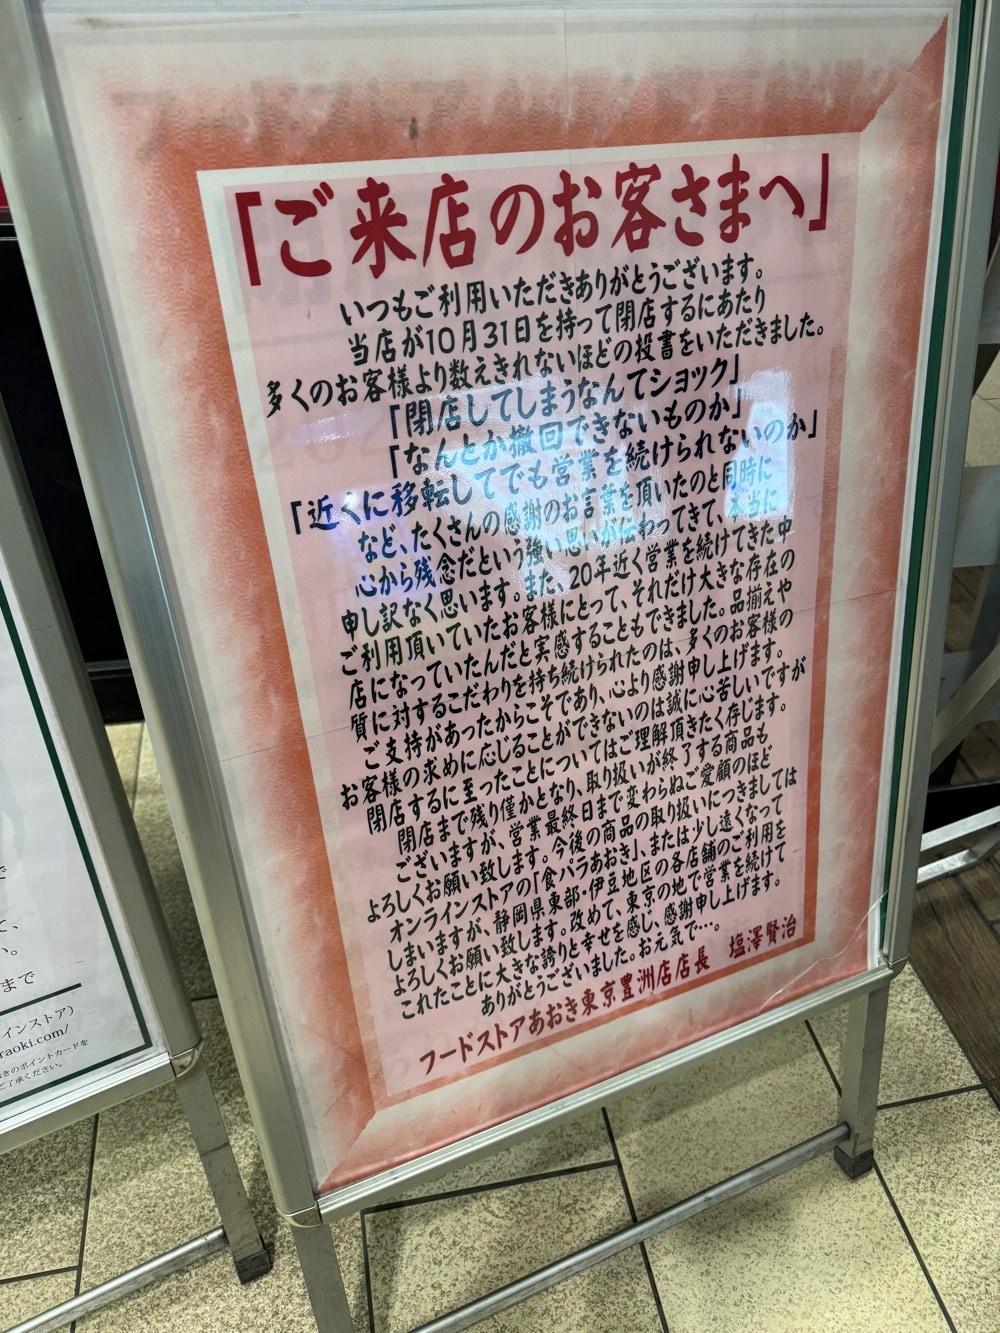 「ご来店のお客さまへ」
いつもご利用いただきありがとうございます。
当店が10月31日を持って閉店するにあたり
多くのお客様より数えきれないほどの投書をいただきました。
「閉店してしまうなんてショック」
「なんとか撤回できないものか」
「近くに移転してでも営業を続けられないのか」
など、たくさんの感謝のお言葉を頂いたのと同時に
心から残念だという強い思いが伝わってきて、本当に
申し訳なく思います。また、20年近く営業を続けてきた中
ご利用頂いていたお客様にとって、それだけ大きな存在の
店になっていたんだと実感することもできました。品揃えや
質に対するこだわりを持ち続けられたのは、多くのお客様の
ご支持があったからこそであり、心より感謝申し上げます。
お客様の求めに応じることができないのは誠に心苦しいですが
閉店するに至ったことについてはご理解頂きたく存じます。
閉店まで残り僅かとなり、取り扱いが終了する商品も
ございますが、営業最終日まで変わらぬご愛顧のほど
よろしくお願い致します。今後の商品の取り扱いにつきましては
オンラインストアの「食パラあおき」、または少し遠くなって
しまいますが、静岡県東部・伊豆地区の各店舗のご利用を
よろしくお願い致します。改めて、東京の地で営業を続けて
これたことに大きな誇りと幸せを感じ、感謝申し上げます。
ありがとうございました。お元気で…。
フードストアあおき東京豊洲店店長 塩澤賢治
で
て、
い。
まで
インストア）
raoki.com/
きのポイントカードを
ご了承ください。